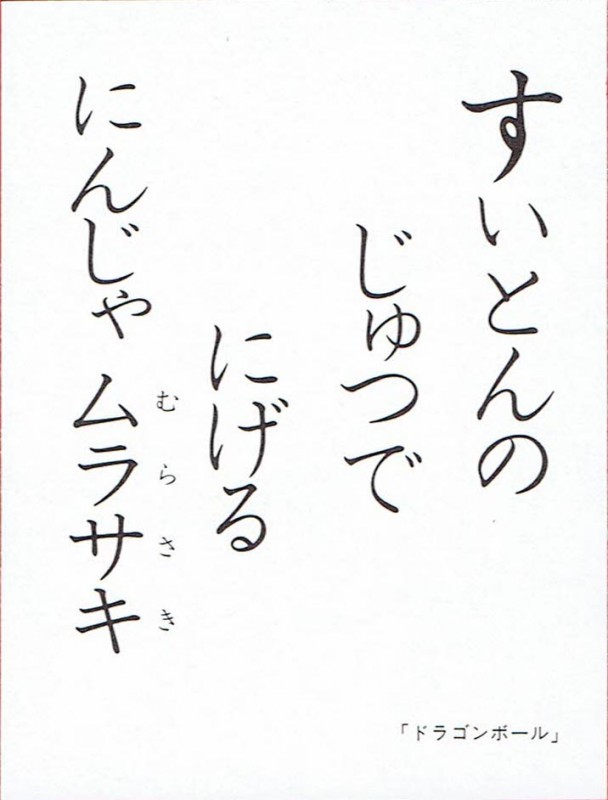 すいとんの
じゅつで
にげる
にんじゃ ムラサキ
むらさき
「ドラゴンボール」